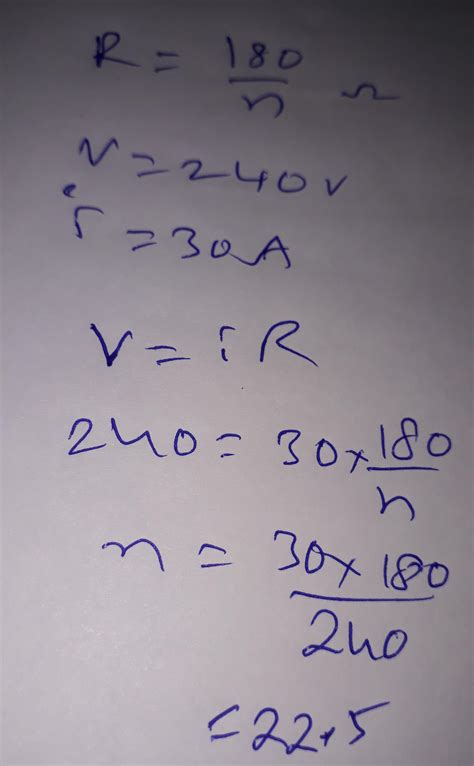 R = 180/n Ω
V = 240 v
i = 30 A
V = i R
240 = 30 × 180/n
n = 30 × 180/240
= 22.5